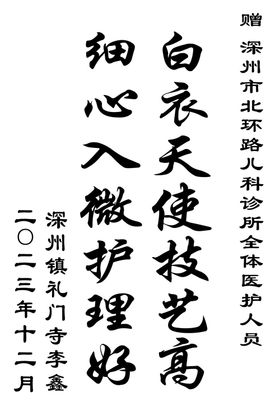 赠 深州市北环路儿科诊所全体医护人员
白衣天使技艺高
细心入微护理好
深州镇礼门寺李鑫
二〇二三年十二月